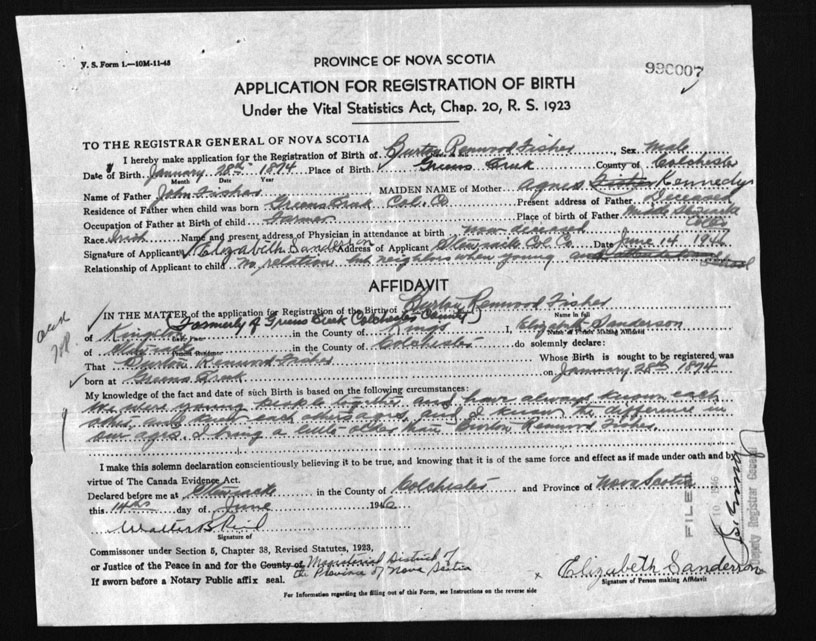 V. S. Form 1.—10M-11-43
PROVINCE OF NOVA SCOTIA
990007
APPLICATION FOR REGISTRATION OF BIRTH
Under the Vital Statistics Act, Chap. 20, R. S. 1923
TO THE REGISTRAR GENERAL OF NOVA SCOTIA
I hereby make application for the Registration of Birth of Burton Renwood Fisher, Sex Male
Date of Birth January 28th 1874 Place of Birth Greens Creek County of Colchester
Month Date Year
Name of Father John Fisher MAIDEN NAME of Mother Agnes Kennedy
Residence of Father when child was born Greens Creek Col. Co Present address of Father Deceased
Occupation of Father at Birth of child Farmer Place of birth of Father Middle Stewiacke
Race Irish Name and present address of Physician in attendance at birth now deceased
Signature of Applicant Elizabeth Sanderson Address of Applicant Stewiacke Col Co. Date June 14 1946
Relationship of Applicant to child No relation but neighbors when young and
AFFIDAVIT
IN THE MATTER of the application for Registration of the Birth of Burton Renwood Fisher
Name in full
(Formerly of Greens Creek (Colchester County)
of Kingston in the County of Kings I, Elizabeth Sanderson
Name of Person Making Affidavit
of Stewiacke in the County of Colchester do solemnly declare:
Present Residence
That Burton Renwood Fisher Whose Birth is sought to be registered was
born at Greens Creek on January 28th 1874
My knowledge of the fact and date of such Birth is based on the following circumstances:
We were young people together and have always known each
other, and each others ages, and I know the difference in
our ages. I being a little older than Burton Renwood Fisher
I make this solemn declaration conscientiously believing it to be true, and knowing that it is of the same force and effect as if made under oath and by
virtue of The Canada Evidence Act.
Declared before me at Stewiacke in the County of Colchester and Province of Nova Scotia
this 14th day of June 1946
Walter B Reid
Signature of
Commissioner under Section 5, Chapter 38, Revised Statutes, 1923,
or Justice of the Peace in and for the County of Magisterial District of
the Province of Nova Scotia
If sworn before a Notary Public affix seal.
x Elizabeth Sanderson
Signature of Person making Affidavit
For information regarding the filling out of this Form, see Instructions on the reverse side
FILED
10 1946
Deputy Registrar General